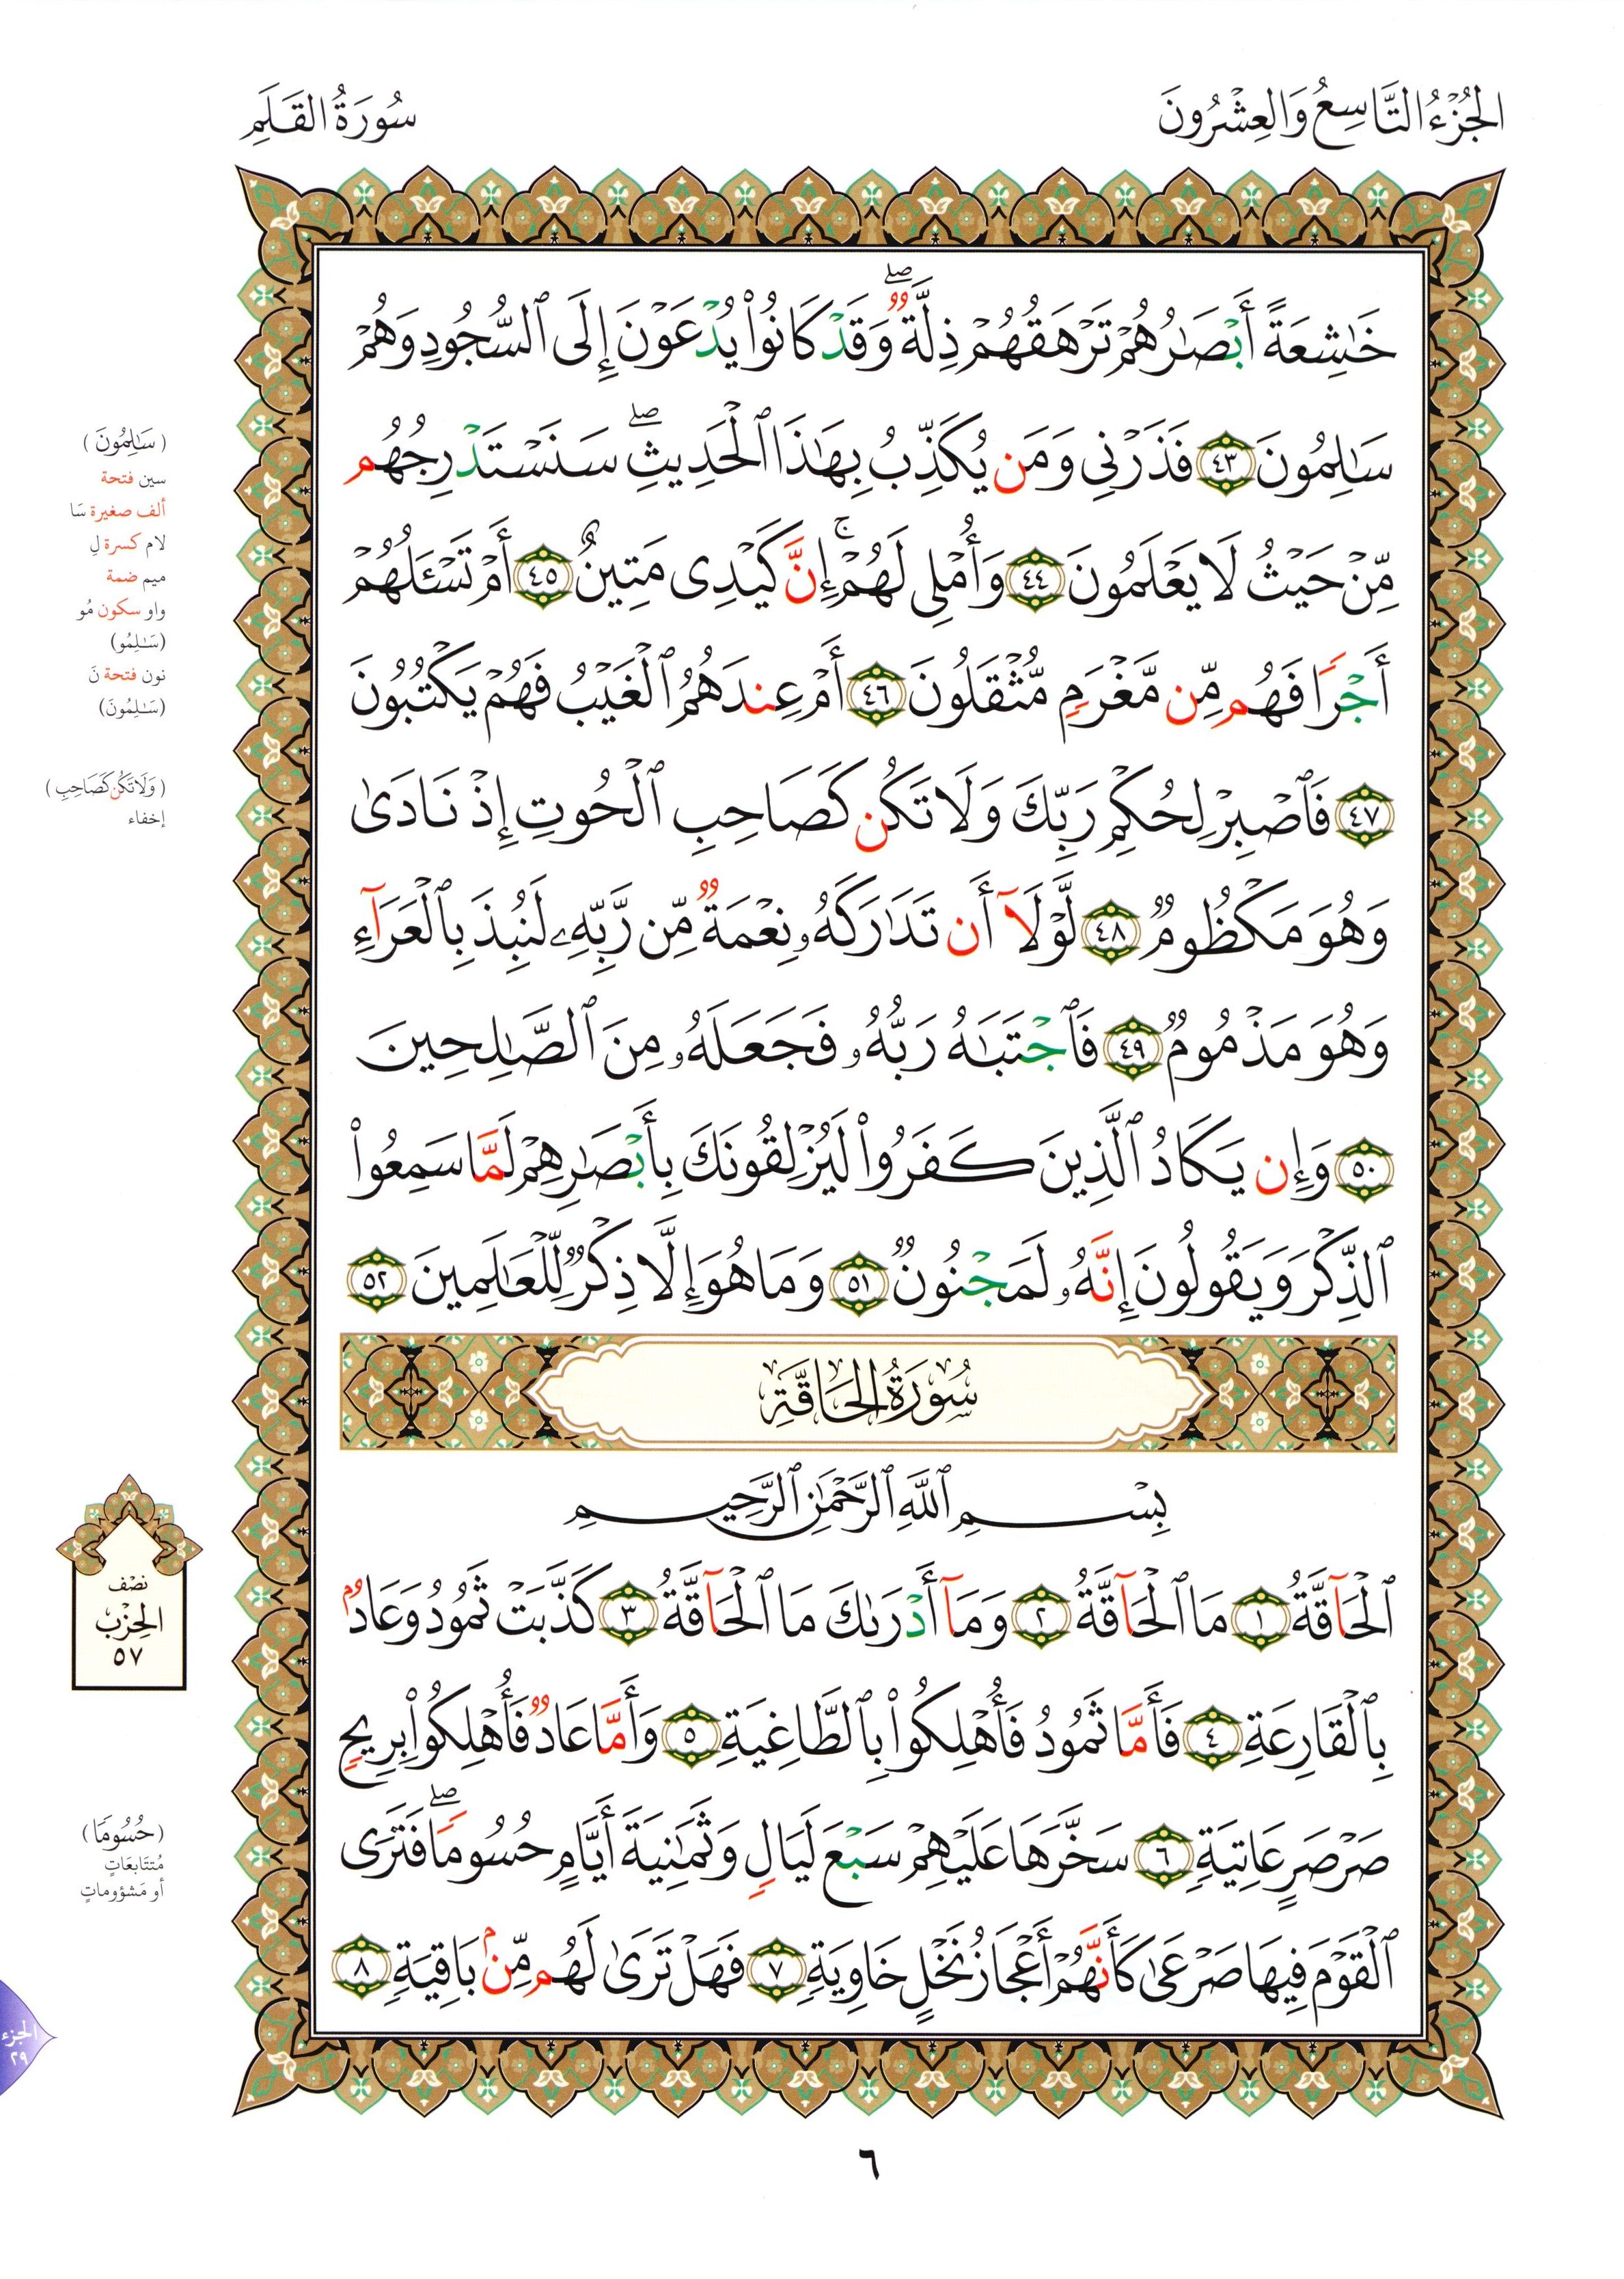 الجُزْءُ التَّاسِعُ وَالعِشْرُونَ
سُورَةُ القَلَمِ
خَٰشِعَةً أَبْصَٰرُهُمْ تَرْهَقُهُمْ ذِلَّةٌ ۖ وَقَدْ كَانُوا۟ يُدْعَوْنَ إِلَى ٱلسُّجُودِ وَهُمْ
سَٰلِمُونَ ٤٣ فَذَرْنِى وَمَن يُكَذِّبُ بِهَٰذَا ٱلْحَدِيثِ ۖ سَنَسْتَدْرِجُهُم
مِّنْ حَيْثُ لَا يَعْلَمُونَ ٤٤ وَأُمْلِى لَهُمْ ۚ إِنَّ كَيْدِى مَتِينٌ ٤٥ أَمْ تَسْـَٔلُهُمْ
أَجْرًا فَهُم مِّن مَّغْرَمٍ مُّثْقَلُونَ ٤٦ أَمْ عِندَهُمُ ٱلْغَيْبُ فَهُمْ يَكْتُبُونَ
٤٧ فَٱصْبِرْ لِحُكْمِ رَبِّكَ وَلَا تَكُن كَصَاحِبِ ٱلْحُوتِ إِذْ نَادَىٰ
وَهُوَ مَكْظُومٌ ٤٨ لَّوْلَآ أَن تَدَٰرَكَهُۥ نِعْمَةٌ مِّن رَّبِّهِۦ لَنُبِذَ بِٱلْعَرَآءِ
وَهُوَ مَذْمُومٌ ٤٩ فَٱجْتَبَٰهُ رَبُّهُۥ فَجَعَلَهُۥ مِنَ ٱلصَّٰلِحِينَ
٥٠ وَإِن يَكَادُ ٱلَّذِينَ كَفَرُوا۟ لَيُزْلِقُونَكَ بِأَبْصَٰرِهِمْ لَمَّا سَمِعُوا۟
ٱلذِّكْرَ وَيَقُولُونَ إِنَّهُۥ لَمَجْنُونٌ ٥١ وَمَا هُوَ إِلَّا ذِكْرٌ لِّلْعَٰلَمِينَ ٥٢
سُورَةُ الحَاقَّةِ
بِسْمِ ٱللَّهِ ٱلرَّحْمَٰنِ ٱلرَّحِيمِ
ٱلْحَآقَّةُ ١ مَا ٱلْحَآقَّةُ ٢ وَمَآ أَدْرَىٰكَ مَا ٱلْحَآقَّةُ ٣ كَذَّبَتْ ثَمُودُ وَعَادٌۢ
بِٱلْقَارِعَةِ ٤ فَأَمَّا ثَمُودُ فَأُهْلِكُوا۟ بِٱلطَّاغِيَةِ ٥ وَأَمَّا عَادٌ فَأُهْلِكُوا۟ بِرِيحٍ
صَرْصَرٍ عَاتِيَةٍ ٦ سَخَّرَهَا عَلَيْهِمْ سَبْعَ لَيَالٍ وَثَمَٰنِيَةَ أَيَّامٍ حُسُومًا ۖ فَتَرَى
ٱلْقَوْمَ فِيهَا صَرْعَىٰ كَأَنَّهُمْ أَعْجَازُ نَخْلٍ خَاوِيَةٍ ٧ فَهَلْ تَرَىٰ لَهُم مِّنۢ بَاقِيَةٍ ٨
(سَٰلِمُونَ)
سين فتحة
ألف صغيرة سَا
لام كسرة لِ
ميم ضمة
واو سكون مُو
(سَٰلِمُو)
نون فتحة نَ
(سَٰلِمُونَ)
(وَلَا تَكُن كَصَاحِبِ)
إخفاء
نصف
الحِزْب
٥٧
(حُسُومًا)
مُتتَابعَاتٍ
أو مَشؤوماتٍ
الجزء
٢٩
٦